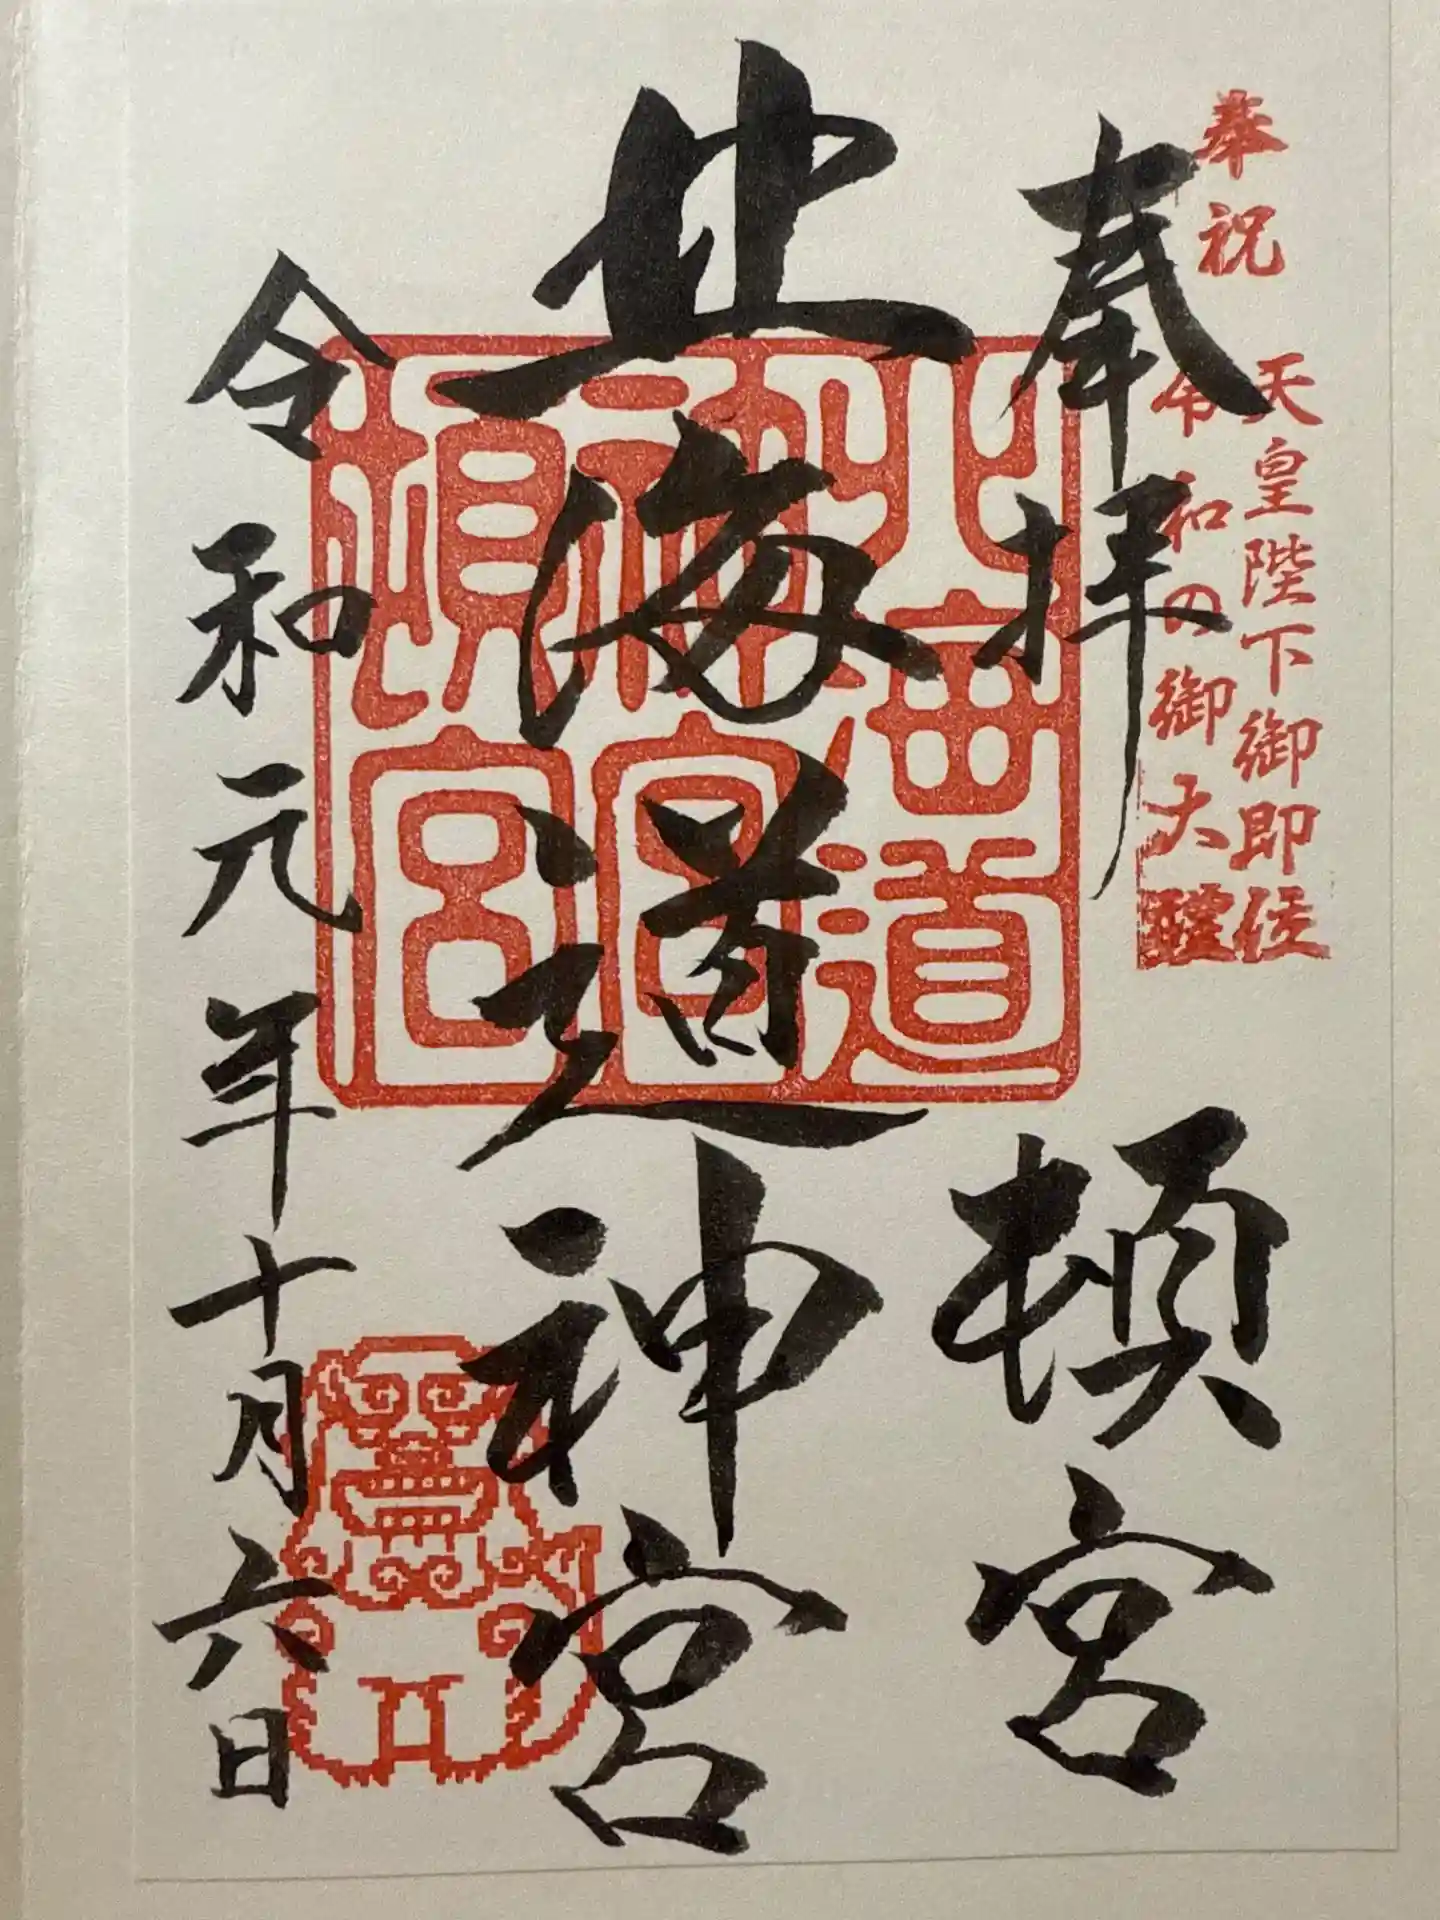 奉祝
天皇陛下御即位
令和の御大禮
奉拝
頓宮
北海道神宮
北海道
神宮
頓宮
令和元年十月六日